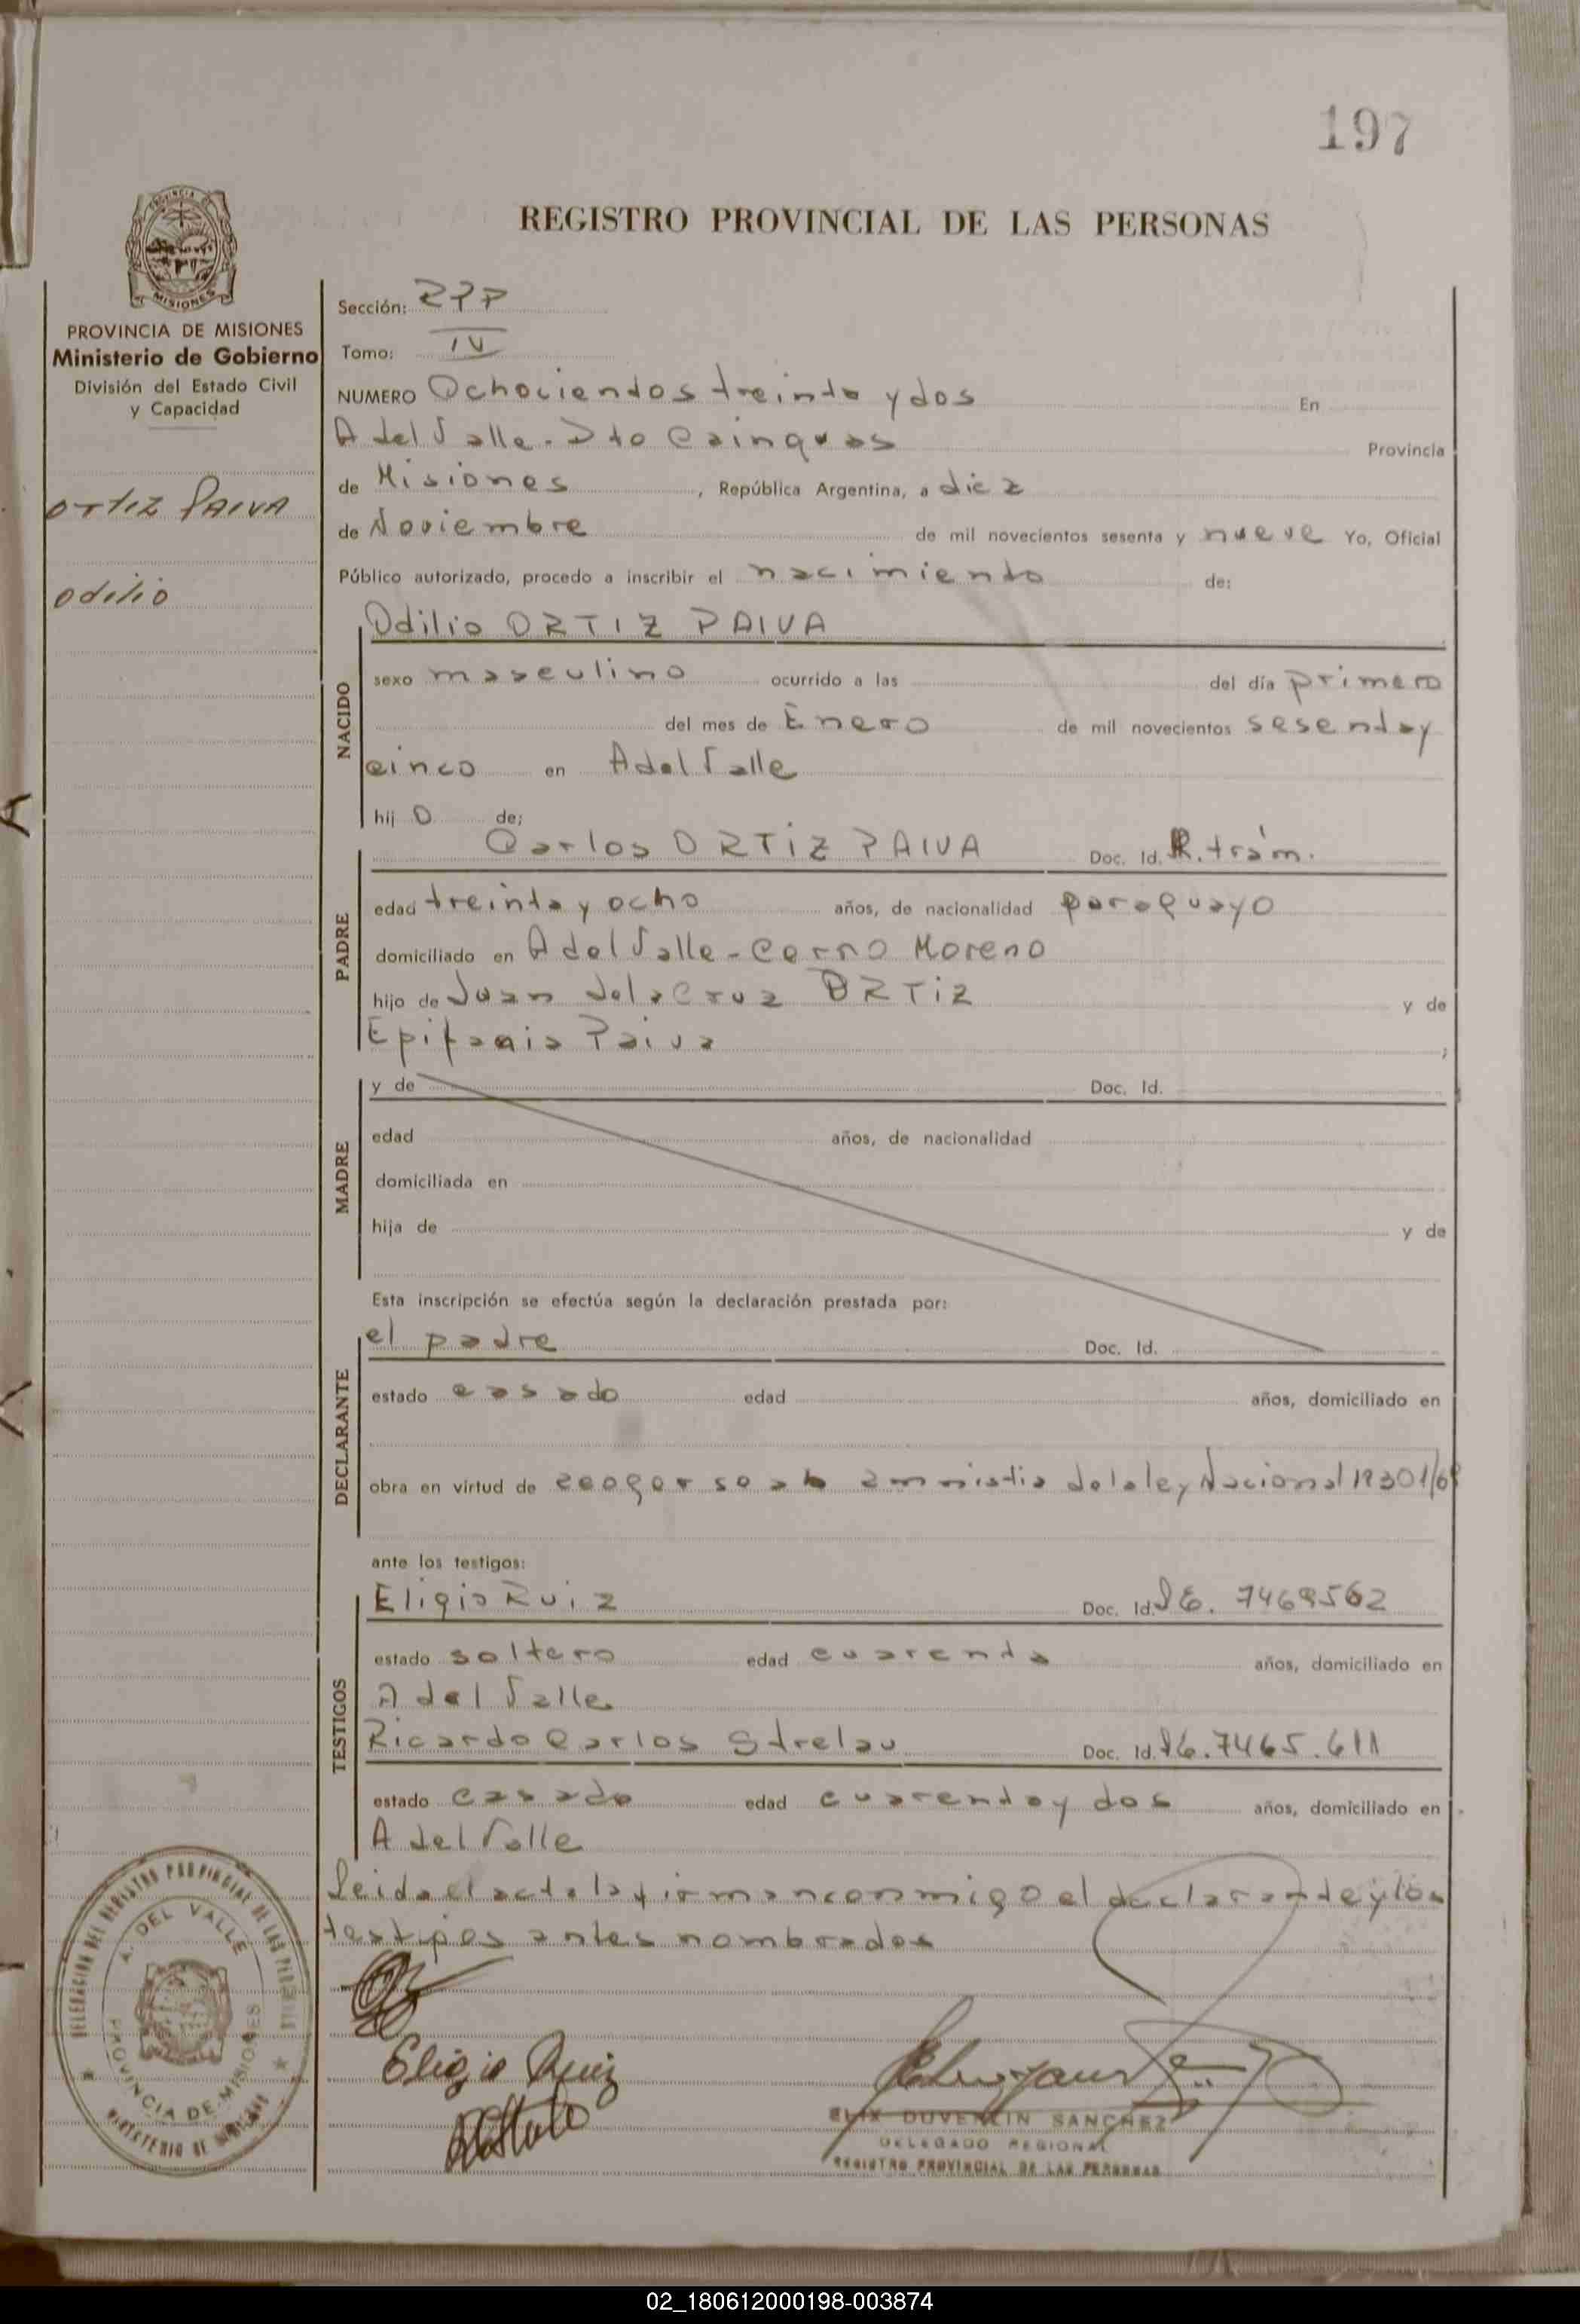 197
REGISTRO PROVINCIAL DE LAS PERSONAS
PROVINCIA DE MISIONES
Ministerio de Gobierno
División del Estado Civil
y Capacidad
ORTIZ PAIVA
Odilio
Sección: RPP
Tomo: IV
NUMERO Ochocientos treinta y dos En
A del Valle - Dto Cainguas Provincia
de Misiones, República Argentina, a diez
de Noviembre de mil novecientos sesenta y nueve Yo, Oficial
Público autorizado, procedo a inscribir el nacimiento de:
NACIDO
Odilio ORTIZ PAIVA
sexo masculino ocurrido a las del día primero
del mes de Enero de mil novecientos sesenta y
cinco en A del Valle
hij o de;
PADRE
Carlos ORTIZ PAIVA Doc. Id. R. trám.
edad treinta y ocho años, de nacionalidad paraguayo
domiciliado en A del Valle - Cerro Moreno
hijo de Juan de la Cruz ORTIZ y de
Epifania Paiva ;
MADRE
y de Doc. Id.
edad años, de nacionalidad
domiciliada en
hija de y de
Esta inscripción se efectúa según la declaración prestada por:
DECLARANTE
el padre Doc. Id.
estado casado edad años, domiciliado en
obra en virtud de acogerse a la amnistia de la ley Nacional
ante los testigos:
TESTIGOS
Eligio Ruiz Doc. Id. LE. 7469562
estado soltero edad cuarenta años, domiciliado en
A del Valle
Ricardo Carlos Strelau Doc. Id. LE. 7465.611
estado casado edad cuarenta y dos años, domiciliado en
A del Valle
Leida el acta la firman conmigo el declarante y los
testigos antes nombrados
Eligio Ruiz
DUVERLIN SANCHEZ
DELEGADO REGIONAL
REGISTRO PROVINCIAL DE LAS PERSONAS
DELEGACION DEL REGISTRO PROVINCIAL DE LAS PERSONAS
A. DEL VALLE
PROVINCIA DE MISIONES
MISIONES
02_180612000198-003874